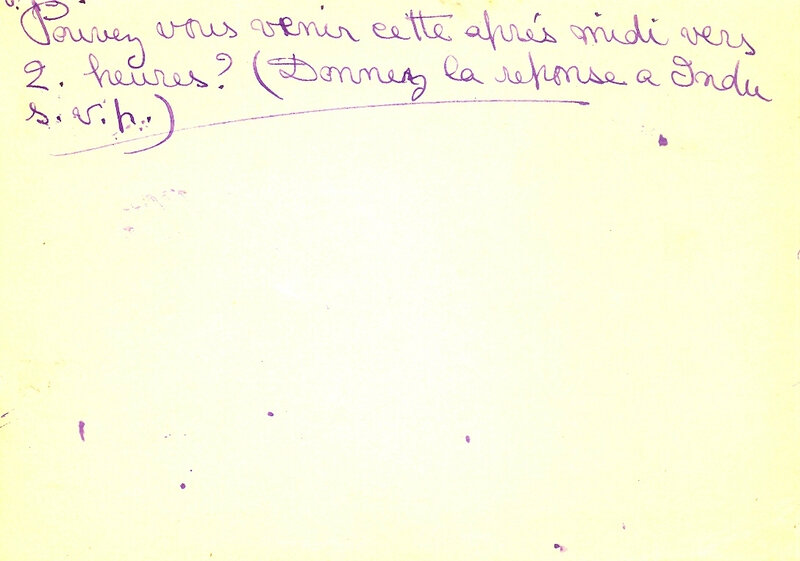 Pouvez vous venir cette après midi vers
2. heures? (Donnez la reponse a Indu
s.v.p.)